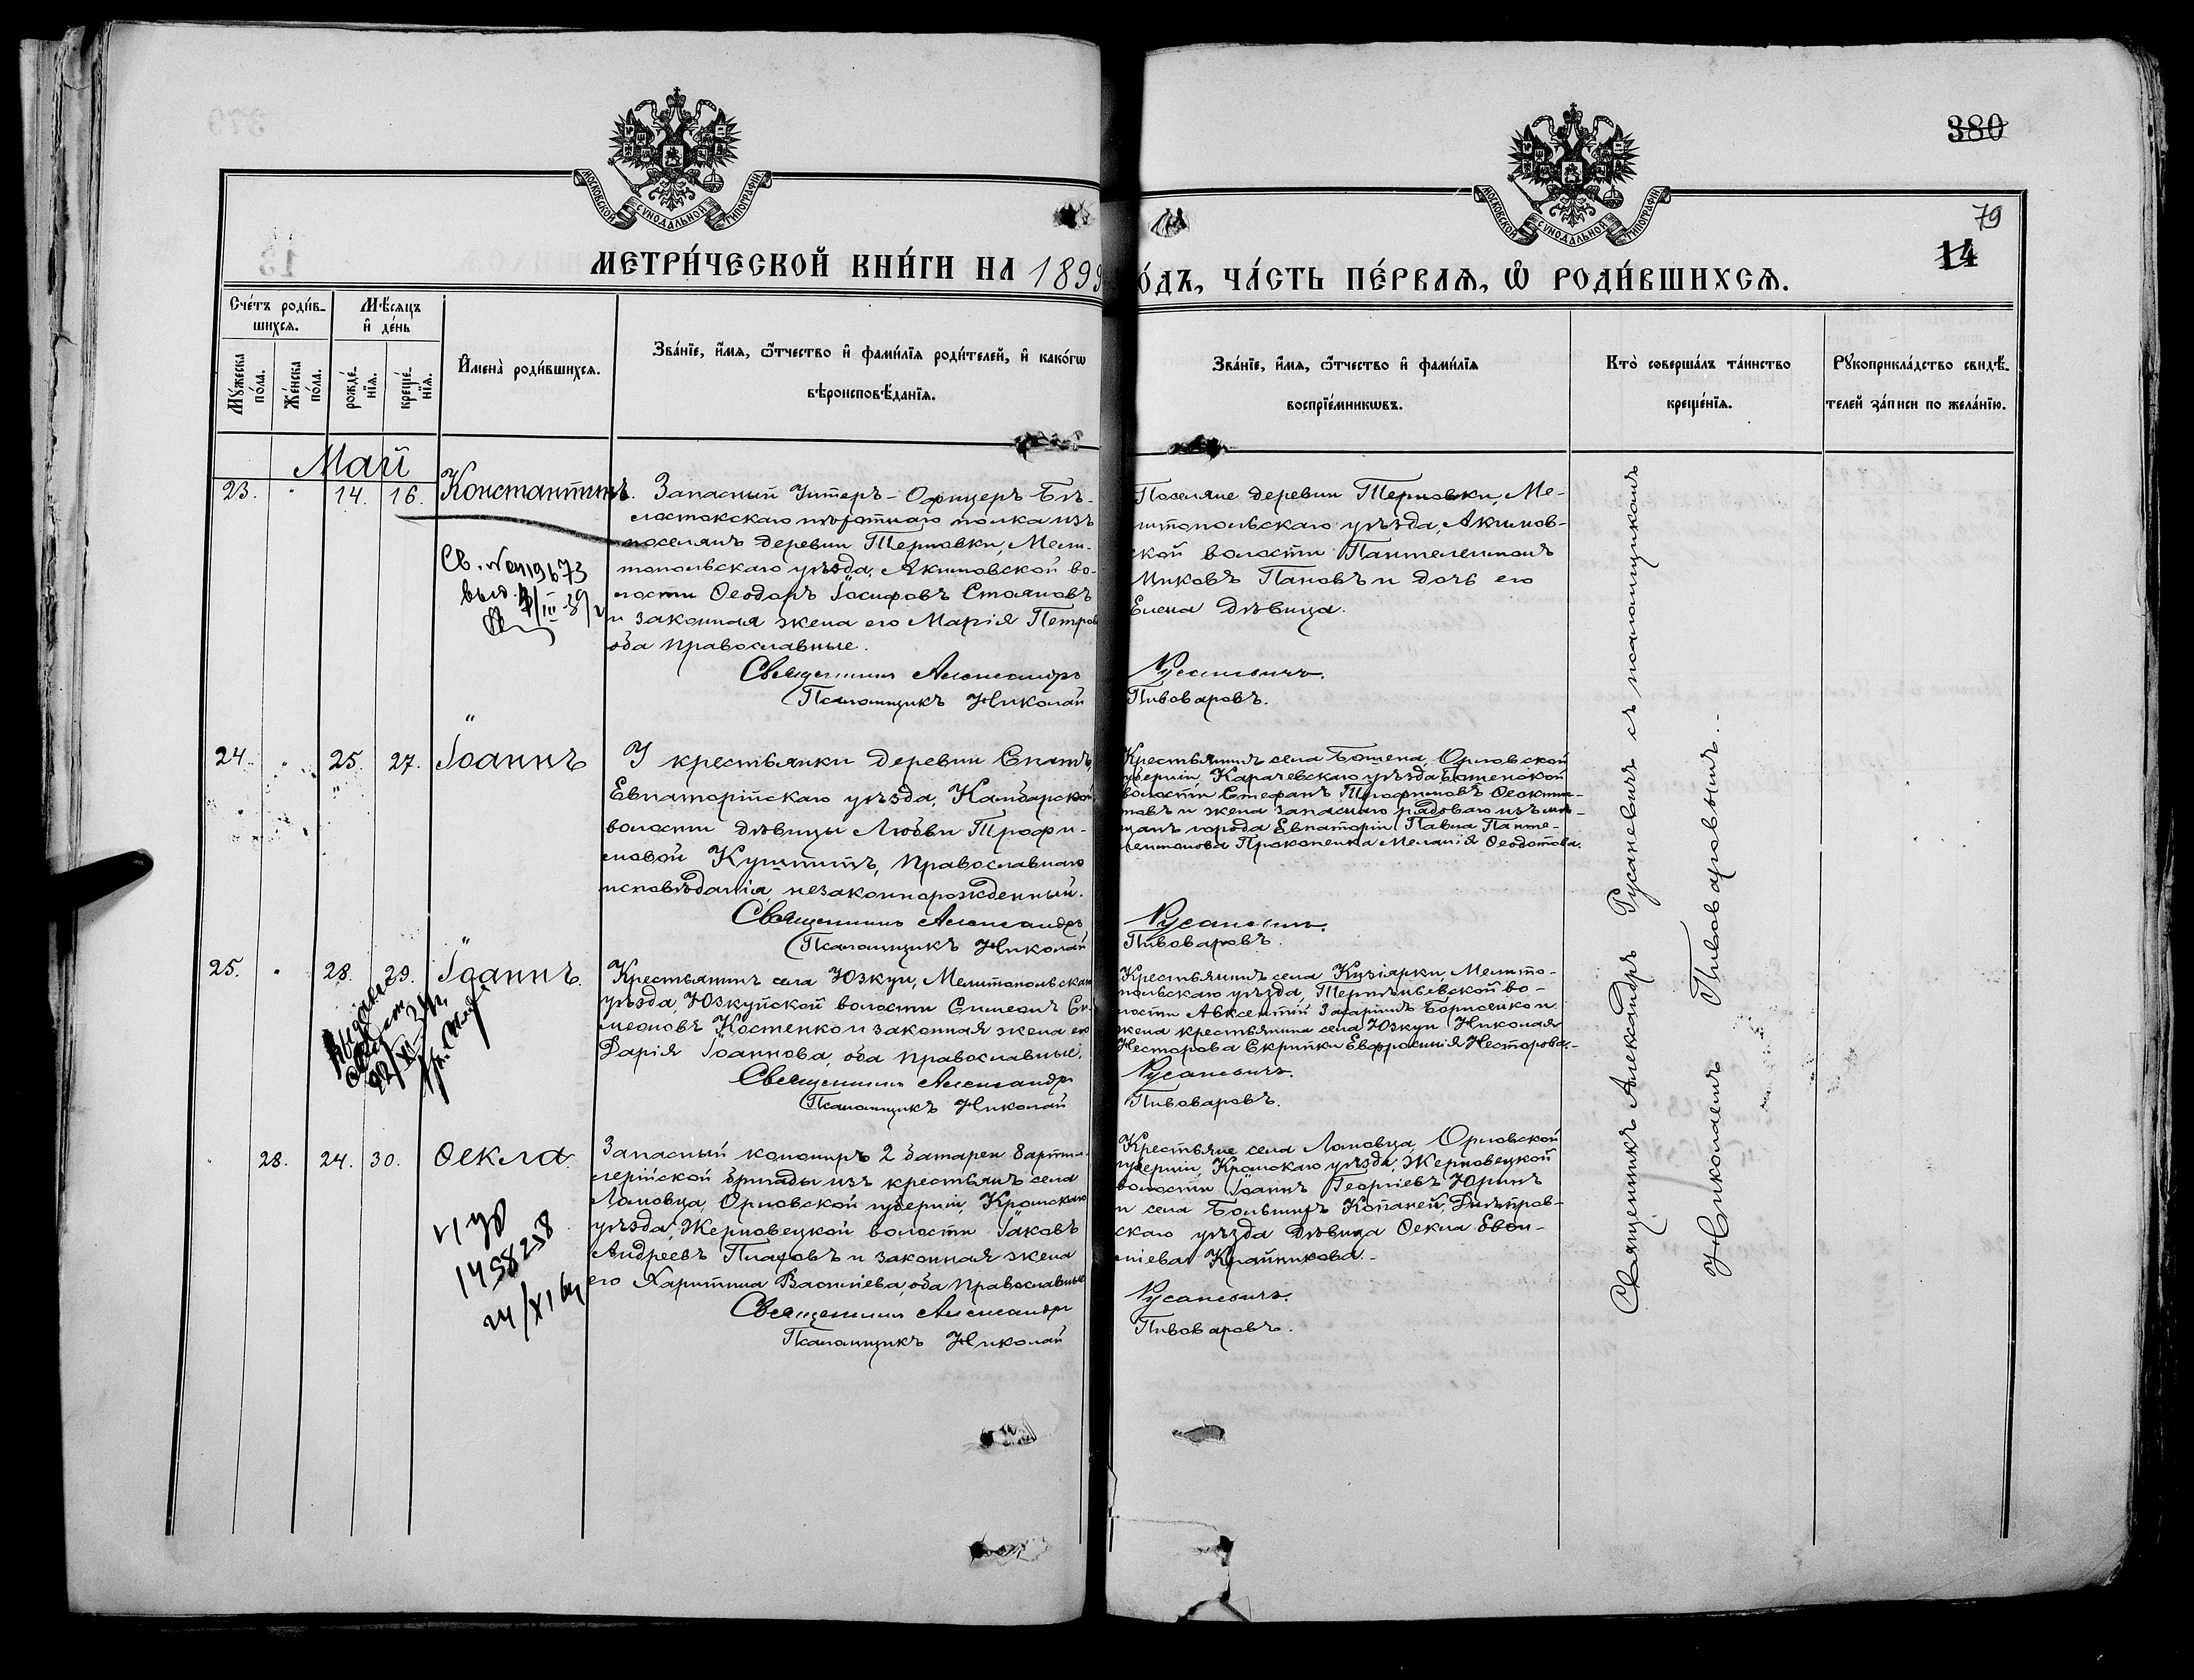 380
79
14
МОСКОВСКОЙ СѴНОДАЛЬНОЙ ТИПОГРАФІИ
МОСКОВСКОЙ СѴНОДАЛЬНОЙ ТИПОГРАФІИ
МЕТРИ́ЧЕСКОЙ КНИ́ГИ НА 1899
О́ДЪ, ЧА́СТЬ ПЕ́РВАѦ, Ѽ РОДИ́ВШИХСѦ.
Сче́тъ роди́в-
шихсѧ.
Мѣ́сѧцъ
и҆ де́нь
Мꙋжеска
по́ла.
Же́нска
по́ла.
рожде́-
нїѧ.
креще́-
нїѧ.
И҆мена̀ роди́вшихсѧ.
Зва́нїе, и҆́мѧ, ѻ҆́тчество и҆ фами́лїѧ роди́телей, и҆ како́гѡ
вѣроисповѣ́данїѧ.
Зва́нїе, и҆́мѧ, ѻ҆́тчество и҆ фами́лїѧ
воспрїе́мникѡвъ.
Кто̀ соверша́лъ та́инство
креще́нїѧ.
Рꙋкоприкла́дство свидѣ́-
телей за́писи по жела́нїю.
Май
23. " 14. 16. Константинъ.
Запасный Унтеръ-Офицеръ Бѣ-
лостокскаго пѣхотнаго полка изъ
поселянъ деревни Терновки, Мели-
топольскаго уѣзда, Акимовской во-
лости Ѳеодоръ Іосифовъ Стояновъ
и законная жена его Марія Петров
оба православные.
Священникъ Александръ
Псаломщикъ Николай
Поселяне деревни Терновки, Ме-
литопольскаго уѣзда, Акимов-
ской волости Пантелеимонъ
Миковъ Пановъ и дочь его
Елена дѣвица.
Русаневичъ.
Пивоваровъ.
Св. 19673
выд.
24. " 25. 27. Іоаннъ
У крестьянки деревни Спатъ,
Евпаторійскаго уѣзда, Камбарской
волости дѣвицы Любви Трофи-
мовой Кушнитъ, православнаго
исповѣданія незаконнорожденный.
Священникъ Александръ
Псаломщикъ Николай
Крестьянинъ села Ботена, Орловской
губерніи, Карачевскаго уѣзда Ботенской
волости Стефанъ Трофимовъ Ѳеоктис-
товъ и жена запаснаго рядоваго изъ мѣ-
щанъ города Евпаторіи Павла Панте-
леимонова Прокопенка Меланія Ѳеодотова.
Русаневичъ.
Пивоваровъ.
25. " 28. 29. Іоаннъ.
Крестьянинъ села Юзкуи, Мелитопольскаго
уѣзда, Юзкуйской волости Симеонъ Си-
меоновъ Костенко и законная жена его
Дарія Іоаннова, оба православные.
Священникъ Александръ
Псаломщикъ Николай
Крестьянинъ села Кизіярки, Мелито-
польскаго уѣзда, Терпѣньевской во-
лости Авксентій Захаріинъ Борисенко и
жена крестьянина села Юзкуи Николая
Несторова Скрипки Евфросинія Несторова.-
Русаневичъ.
Пивоваровъ.
28. 24. 30. Ѳекла.
Запасный канониръ 2 батареи 8 артил-
лерійской бригады изъ крестьянъ села
Лаповца, Орловской губерніи, Кромскаго
уѣзда, Жерновецкой волости Іаковъ
Андреевъ Плахов и законная жена
его Харитина Василіева, оба православные
Священникъ Александръ
Псаломщикъ Николай
Крестьяне села Лаповца, Орловской
губерніи, Кромскаго уѣзда, Жерновецкой
волости Іоаннъ Георгіевъ Юринъ
и села Большихъ Копаней, Днѣпров-
скаго уѣзда дѣвица Ѳекла Евфи-
міева Крайникова.-
Русаневичъ.
Пивоваровъ.
1458258
24/XI 64
Священникъ Александръ Русаневичъ съ псаломщикомъ
Николаемъ Пивоваровымъ.-